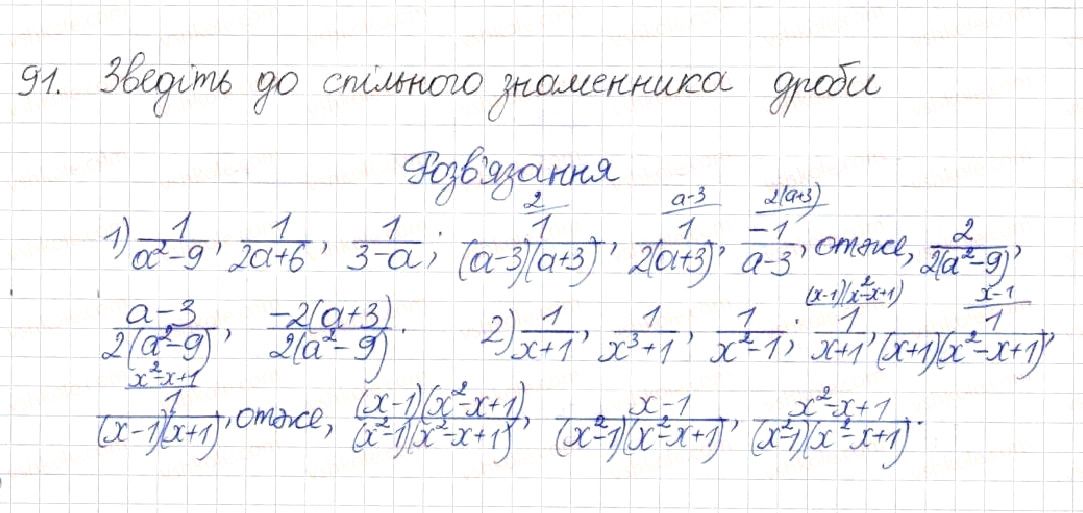 91. Зведіть до спільного знаменника дроби
Розв'язання
1) 1/(a²-9), 1/(2a+6), 1/(3-a); 1/((a-3)(a+3)) ^2, 1/(2(a+3)) ^a-3, -1/(a-3) ^2(a+3), отже, 2/(2(a²-9)),
(a-3)/(2(a²-9)), -2(a+3)/(2(a²-9)). 2) 1/(x+1), 1/(x³+1), 1/(x²-1); 1/(x+1) ^(x-1)(x²-x+1), 1/((x+1)(x²-x+1)) ^x-1,
1/((x-1)(x+1)) ^x²-x+1, отже, (x-1)(x²-x+1)/((x²-1)(x²-x+1)), (x-1)/((x²-1)(x²-x+1)), (x²-x+1)/((x²-1)(x²-x+1)).